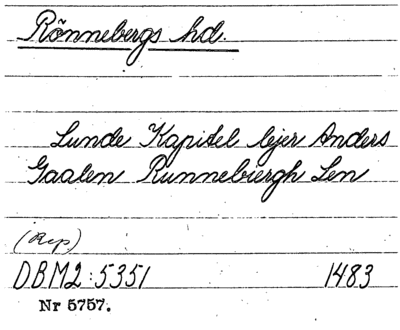 Rönnebergs hd.
Lunde Kapitel lejer Anders
Gaalen Runnebiergh Len
(Rep)
DBM2:5351 1483
Nr 5757.